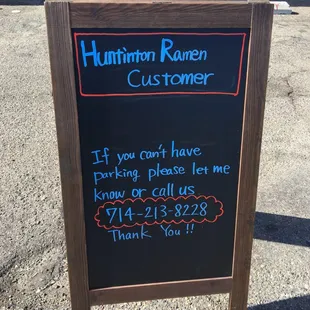 Huntinton Ramen
Customer
If you can't have
parking please let me
know or call us
714-213-8228
Thank You !!